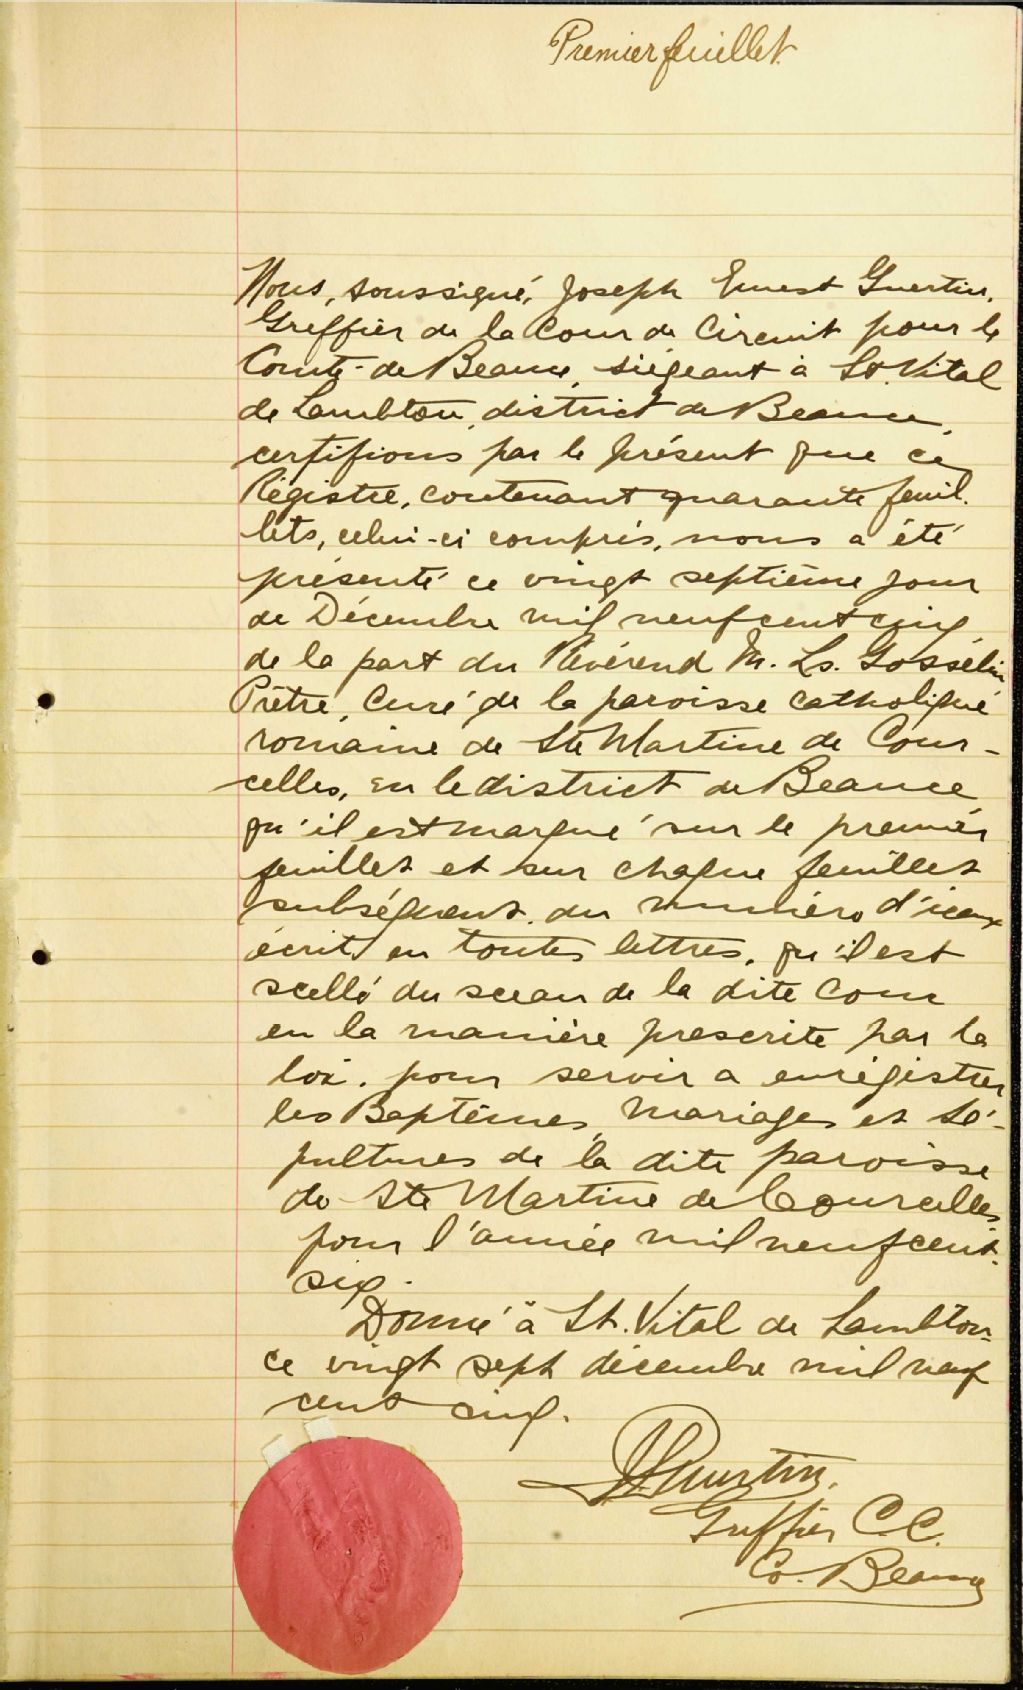 Premier feuillet.
Nous, soussigné, Joseph Ernest Guertin,
Greffier de la Cour de Circuit pour le
Comté de Beauce, siégeant à St. Vital
de Lambton, district de Beauce,
certifions par le présent que ce
Régistre, contenant quarante feuil-
lets, celui-ci compris, nous a été
présenté ce vingt septième jour
de Décembre mil neuf cent cinq
de la part du Révérend M. Ls. Gosselin
Prêtre, Curé de la paroisse catholique
romaine de Ste Martine de Cour-
celles, en le district de Beauce,
qu'il est marqué sur le premier
feuillet et sur chaque feuillet
subséquent, du numéro d'iceux
écrit en toutes lettres, qu'il est
scellé du sceau de la dite Cour
en la manière prescrite par la
loi, pour servir a enrégistrer
les Baptêmes, Mariages et Sé-
pultures de la dite paroisse
de Ste Martine de Courcelles,
pour l'année mil neuf cent
six.
Donné à St. Vital de Lambton
ce vingt sept décembre mil neuf
cent cinq.
Guertin,
Greffier C.C.
Co. Beauce